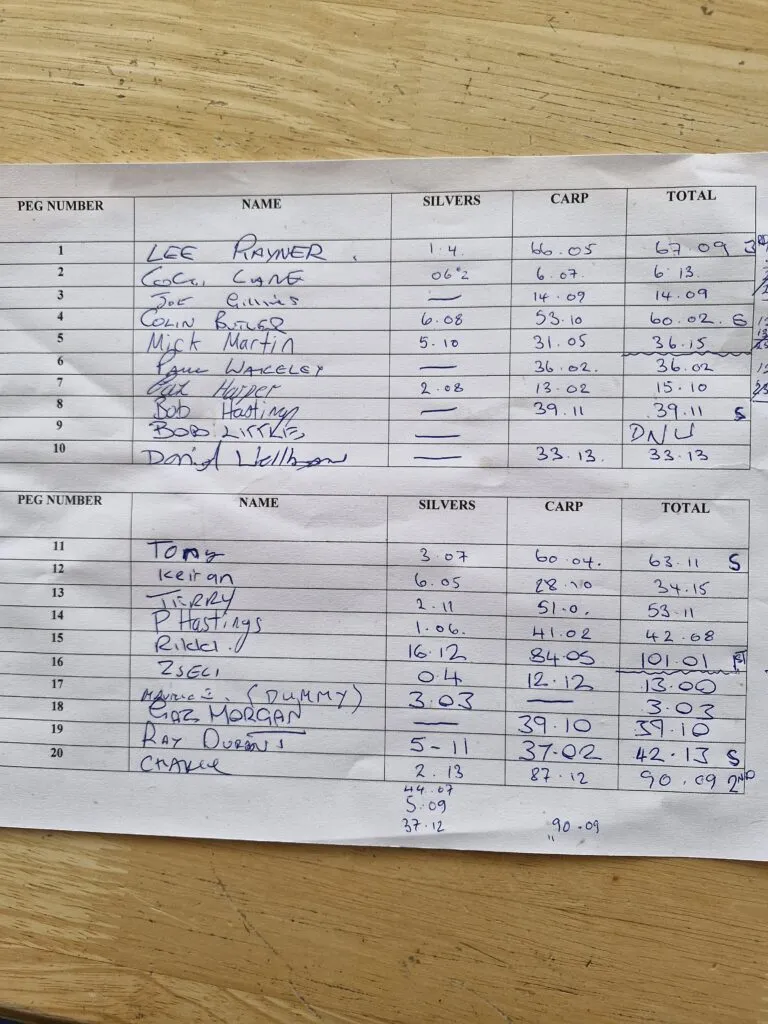 PEG NUMBER NAME SILVERS CARP TOTAL
1 LEE RAYNER. 1.4. 66.05 67.09 3RD
2 06.2 6.07. 6.13
3 JOE Gillies — 14.09 14.09
4 COLIN BUTLER 6.08 53.10 60.02. S
5 Mick Martin 5.10 31.05 36.15
6 PAUL WAKELEY — 36.02. 36.02
7 Harper 2.08 13.02 15.10
8 Bob Hastings — 39.11 39.11 S
9 BOB LITTLE — DNW
10 — 33.13. 33.13
PEG NUMBER NAME SILVERS CARP TOTAL
11 Tony 3.07 60.04. 63.11 S
12 Keiran 6.05 28.10 34.15
13 TERRY 2.11 51.0. 53.11
14 P Hastings 1.06. 41.02 42.08
15 Rikki. 16.12 84.05 101.01 1ST
16 ZSECI 0.4 12.12 13.00
17 (DUMMY) 3.03 — 3.03
18 GAZ MORGAN — 39.10 39.10
19 RAY 5-11 37.02 42.13 S
20 CHARLIE 2.13 87.12 90.09 2ND
44.07
5.09
37.12 90.09
"